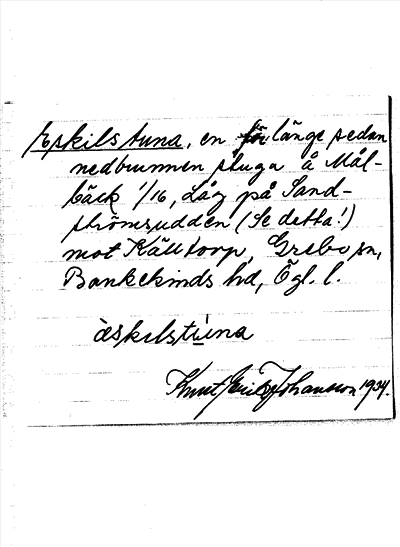 Eskilstuna, en för länge sedan
nedbrunnen stuga å Mål-
bäck 1/16, Låg på Sand-
strömsudden (Se detta!)
mot Källtorp, Grebo sn,
Bankekinds hd, Ögl. l.
èskilstúna
Knut Erik Johansson 1934.